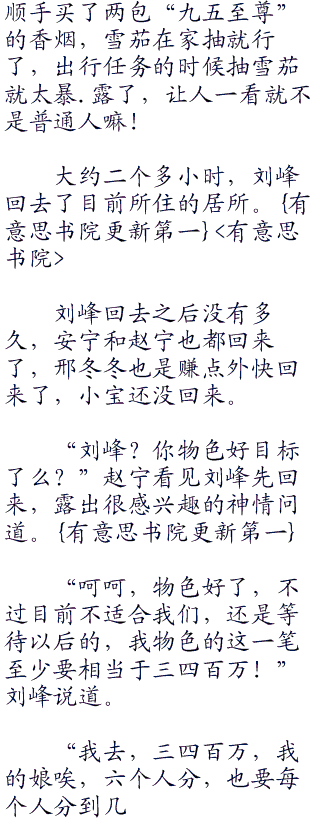 顺手买了两包“九五至尊”
的香烟，雪茄在家抽就行
了，出行任务的时候抽雪茄
就太暴.露了，让人一看就不
是普通人嘛！
大约二个多小时，刘峰
回去了目前所住的居所。{有
意思书院更新第一}<有意思
书院>
刘峰回去之后没有多
久，安宁和赵宁也都回来
了，邢冬冬也是赚点外快回
来了，小宝还没回来。
“刘峰？你物色好目标
了么？”赵宁看见刘峰先回
来，露出很感兴趣的神情问
道。{有意思书院更新第一}
“呵呵，物色好了，不
过目前不适合我们，还是等
待以后的，我物色的这一笔
至少要相当于三四百万！”
刘峰说道。
“我去，三四百万，我
的娘唉，六个人分，也要每
个人分到几